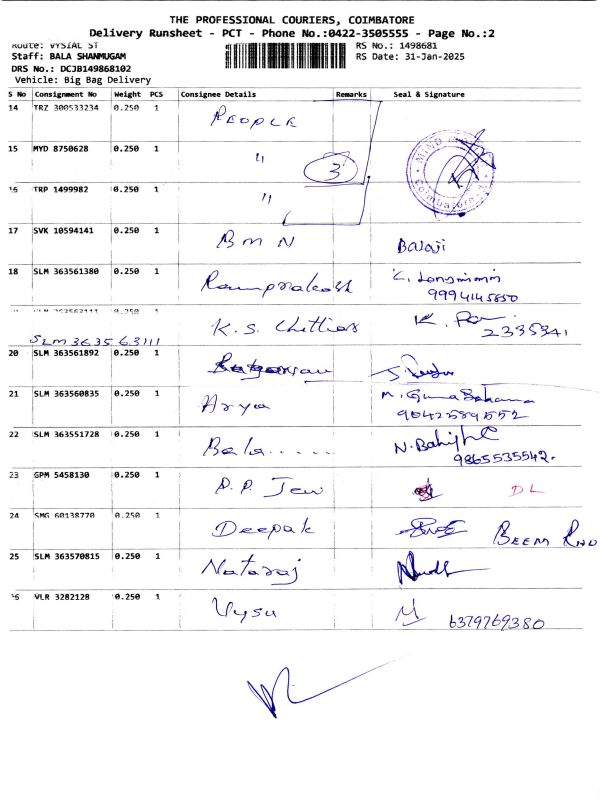 THE PROFESSIONAL COURIERS, COIMBATORE
Delivery Runsheet - PCT - Phone No.:0422-3505555 - Page No.:2
Route: VYSIAL ST
RS No.: 1498681
Staff: BALA SHANMUGAM
RS Date: 31-Jan-2025
DRS No.: DCJB149868102
Vehicle: Big Bag Delivery
S No Consignment No Weight PCS Consignee Details Remarks Seal & Signature
14 TRZ 300533234 0.250 1 PEOPLE
15 MYD 8750628 0.250 1 " 3
16 TRP 1499982 0.250 1 "
17 SVK 10594141 0.250 1 BMN Balaji
18 SLM 363561380 0.250 1 Ramprakash
9994145850
SLM 363563111 0.250 1 K.S. Chettiar
2335341
SLM 363563111
20 SLM 363561892 0.250 1
21 SLM 363560835 0.250 1 Arya
9042589552
22 SLM 363551728 0.250 1 Bala......
9865535542.
23 GPM 5458130 0.250 1 P.P. Jew DL
24 SMG 60138770 0.250 1 Deepak BEEM RAO
25 SLM 363570815 0.250 1 Nataraj
26 VLR 3282128 0.250 1 Vysu M 6379769380